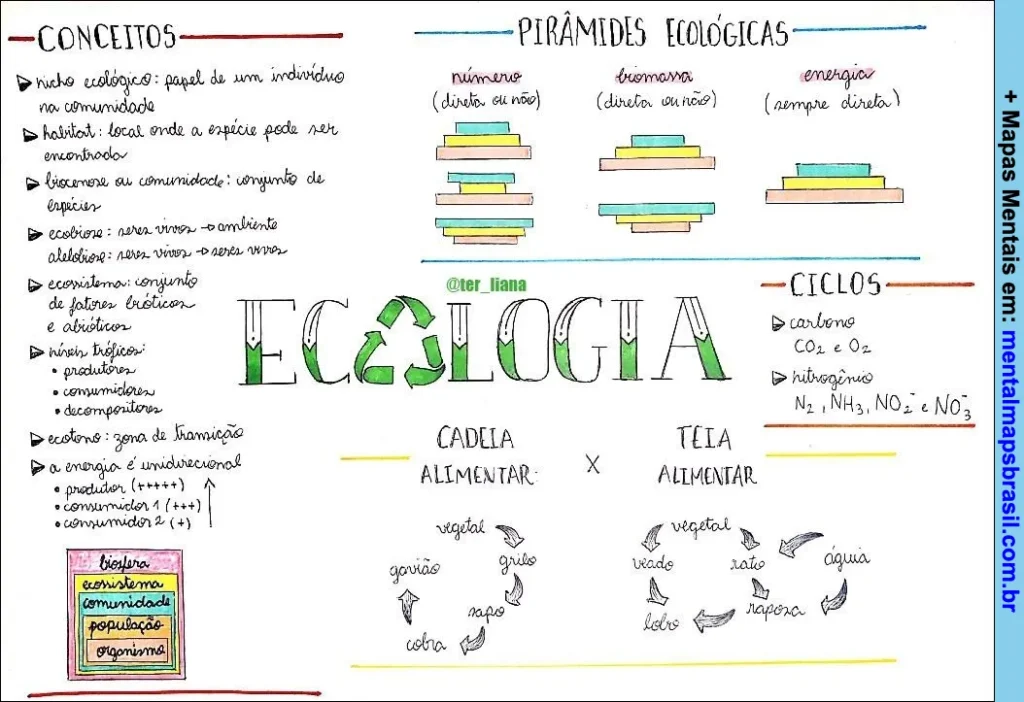 CONCEITOS
nicho ecológico: papel de um indivíduo
na comunidade
habitat: local onde a espécie pode ser
encontrada
biocenose ou comunidade: conjunto de
espécies
ecobiose: seres vivos → ambiente
alelobiose: seres vivos → seres vivos
ecosistema: conjunto
de fatores bióticos
e abióticos
níveis tróficos:
• produtores
• consumidores
• decompositores
ecotono: zona de transição
a energia é unidirecional
• produtor (+++++)
• consumidor 1 (+++)
• consumidor 2 (+)
biosfera
ecossistema
comunidade
população
organismo
PIRÂMIDES ECOLÓGICAS
número
(direta ou não)
biomassa
(direta ou não)
energia
(sempre direta)
@ter_liana
ECOLOGIA
CICLOS
carbono
CO2 e O2
nitrogênio
N2, NH3, NO2⁻ e NO3⁻
CADEIA
ALIMENTAR:
X
TEIA
ALIMENTAR
vegetal
grilo
sapo
cobra
gavião
vegetal
veado
rato
águia
lobo
raposa
+ Mapas Mentais em: mentalmapsbrasil.com.br